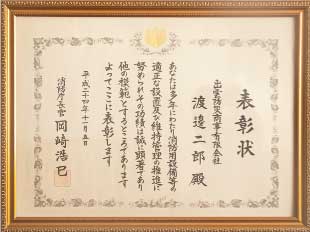 表彰状
出雲防災商事有限会社
渡邉二郎殿
あなたは多年にわたり消防用設備等の
適正な設置及び維持管理の推進に
努められその功績は誠に顕著であり
他の模範とするところであります
よってここに表彰します
平成二十四年十一月五日
消防庁長官 岡崎浩巳